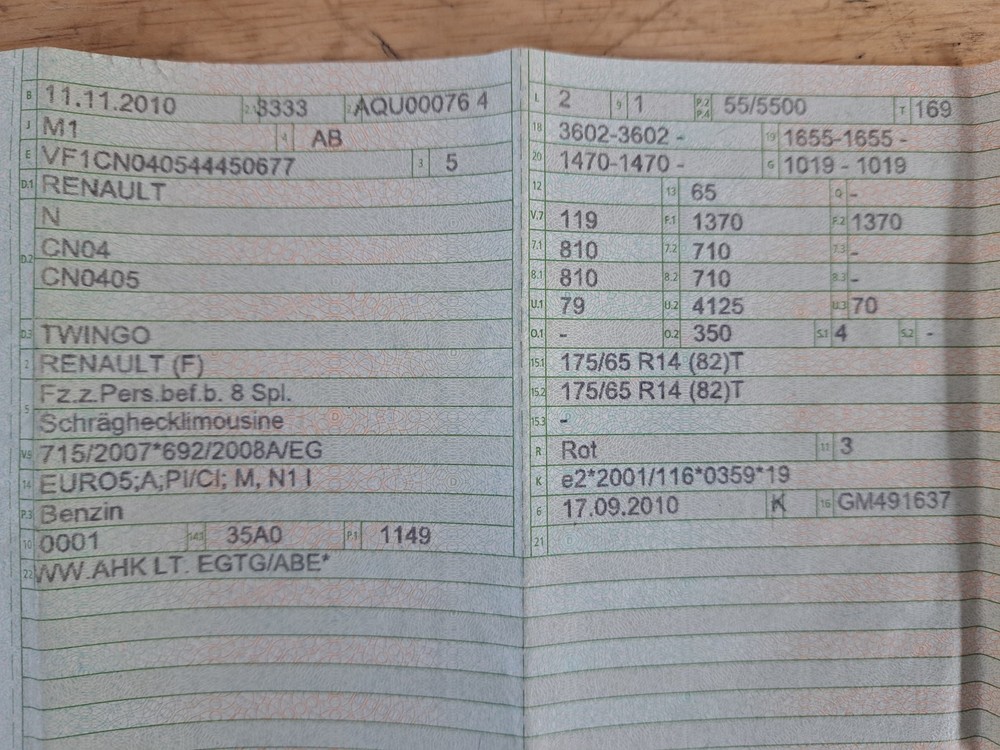 B 11.11.2010 2.1 3333 2.2 AQU00076 4
J M1 4 AB
E VF1CN040544450677 3 5
D.1 RENAULT
N
D.2 CN04
CN0405
D.3 TWINGO
2 RENAULT (F)
5 Fz.z.Pers.bef.b. 8 Spl.
Schräghecklimousine
V.9 715/2007*692/2008A/EG
14 EURO5;A;PI/CI; M, N1 I
P.3 Benzin
10 0001 14.1 35A0 P.1 1149
22 WW.AHK LT. EGTG/ABE*
L 2 9 1 P.2 P.4 55/5500 T 169
18 3602-3602 - 19 1655-1655 -
20 1470-1470 - G 1019 - 1019
12 13 65 Q -
V.7 119 F.1 1370 F.2 1370
7.1 810 7.2 710 7.3 -
8.1 810 8.2 710 8.3 -
U.1 79 U.2 4125 U.3 70
O.1 - O.2 350 S.1 4 S.2 -
15.1 175/65 R14 (82)T
15.2 175/65 R14 (82)T
15.3 -
R Rot 11 3
K e2*2001/116*0359*19
6 17.09.2010 K 16 GM491637
21